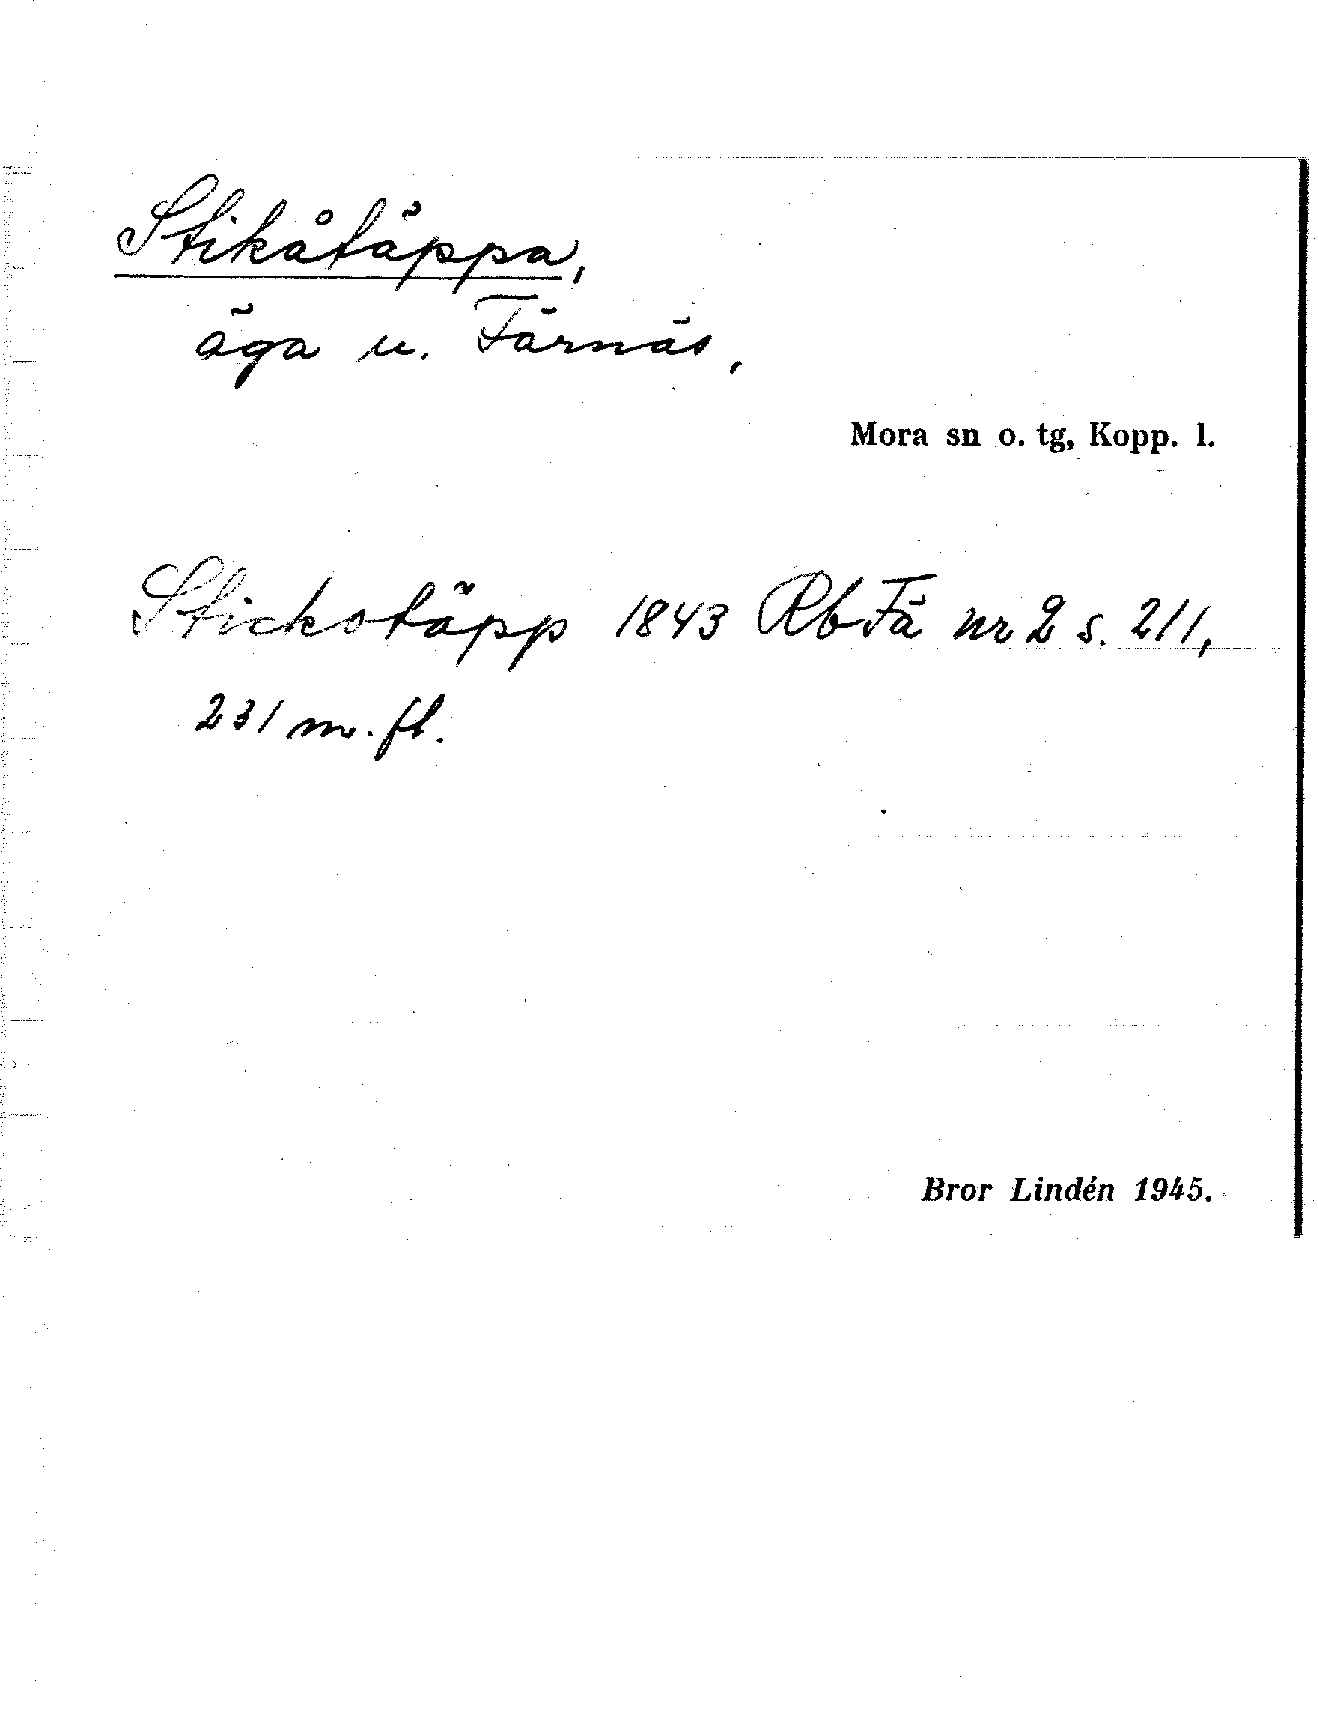 Stikåtäppa,
äga u. Färnäs,
Mora sn o. tg, Kopp. l.
Stickotäpp 1843 Rb Fä nr 2 s. 211,
231 m. fl.
Bror Lindén 1945.